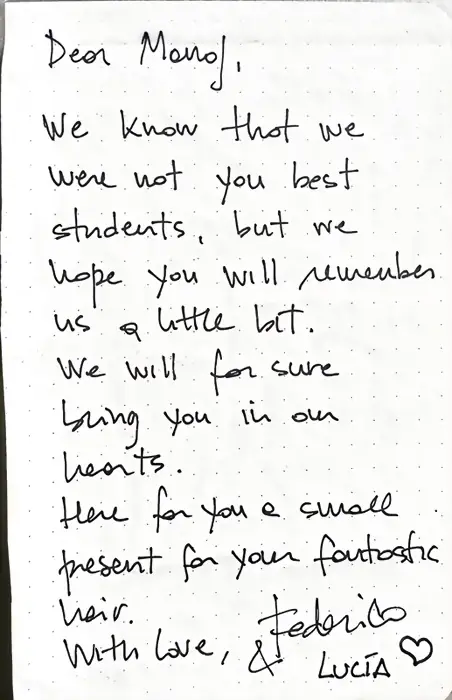 Dear Manoj,
We know that we
were not you best
students, but we
hope you will remember
us a little bit.
We will for sure
bring you in our
hearts.
Here for you a small
present for your fantastic
hair.
With love, Federico
& LUCÍA ♡